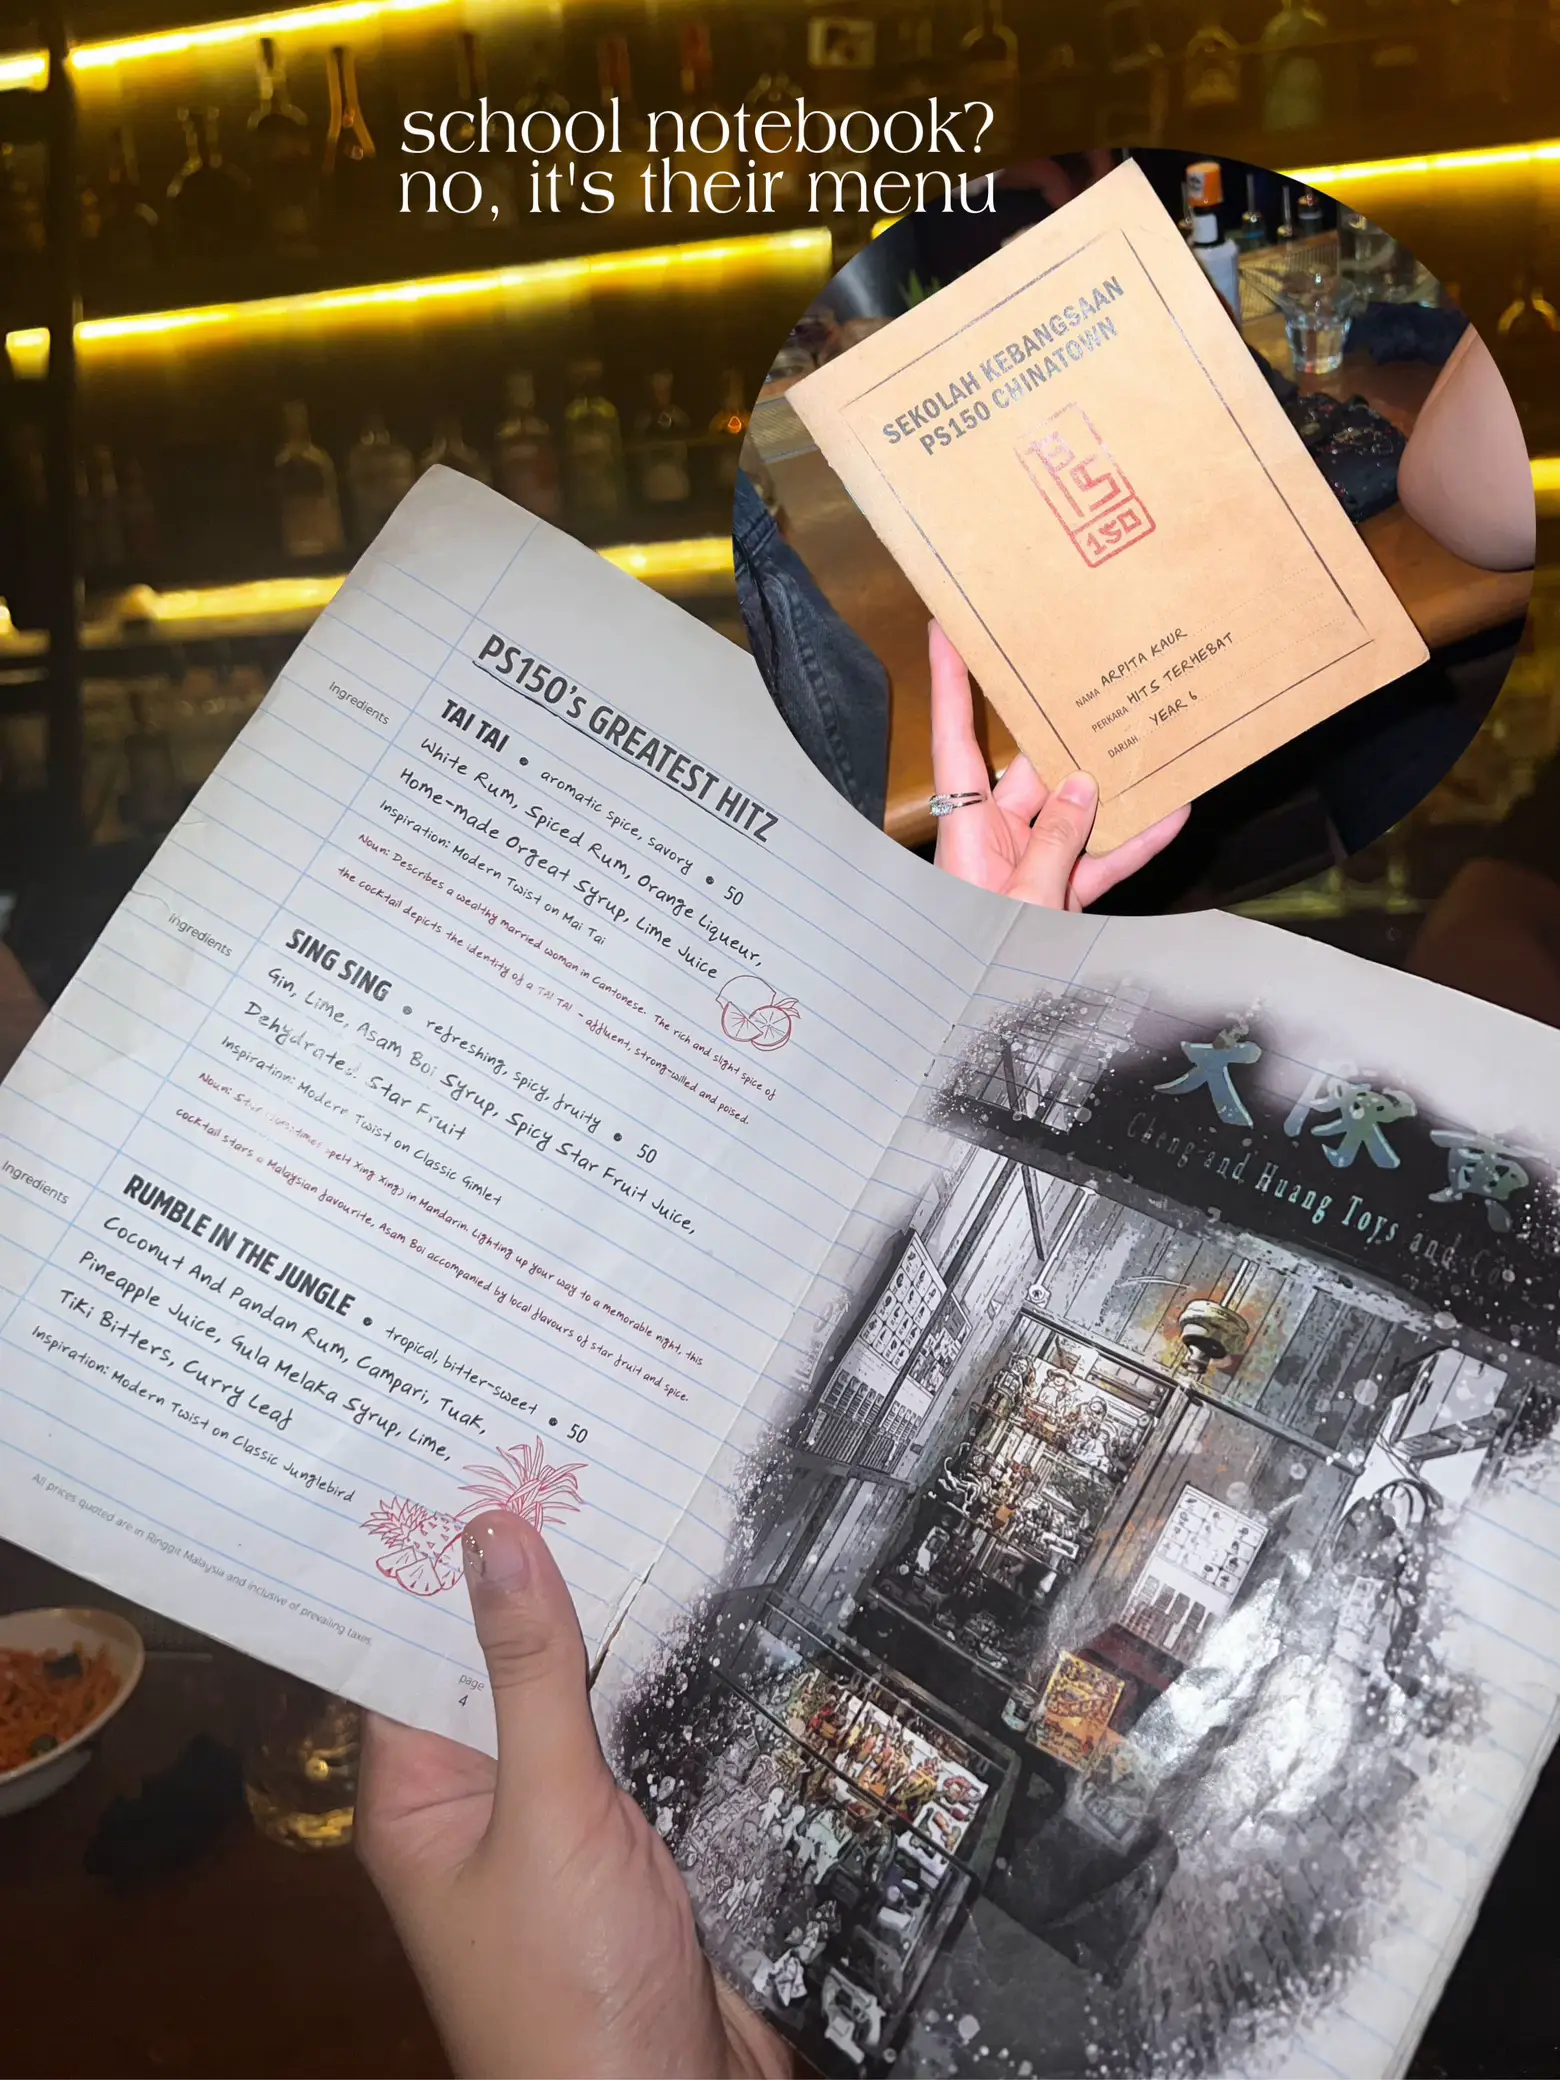 school notebook?
no, it's their menu
SEKOLAH KEBANGSAAN
PS150 CHINATOWN
PS
150
NAMA ARPITA KAUR
PERKARA HITS TERHEBAT
DARJAH YEAR 6
PS150'S GREATEST HITZ
Ingredients
TAI TAI • aromatic spice, savory • 50
White Rum, Spiced Rum, Orange Liqueur,
Home-made Orgeat Syrup, Lime Juice
Inspiration: Modern Twist on Mai Tai
Noun: Describes a wealthy married woman in Cantonese. The rich and slight spice of
the cocktail depicts the identity of a TAI TAI - affluent, strong-willed and poised.
Ingredients
SING SING • refreshing, spicy, fruity • 50
Gin, Lime, Asam Boi Syrup, Spicy Star Fruit Juice,
Dehydrated Star Fruit
Inspiration: Modern Twist on Classic Gimlet
Noun: Star (sometimes spelt Xing Xing) in Mandarin. Lighting up your way to a memorable night, this
cocktail stars a Malaysian favourite, Asam Boi accompanied by local flavours of star fruit and spice.
Ingredients
RUMBLE IN THE JUNGLE • tropical, bitter-sweet • 50
Coconut And Pandan Rum, Campari, Tuak,
Pineapple Juice, Gula Melaka Syrup, Lime,
Tiki Bitters, Curry Leaf
Inspiration: Modern Twist on Classic Junglebird
All prices quoted are in Ringgit Malaysia and inclusive of prevailing taxes.
page
4
Cheng and Huang Toys and Co